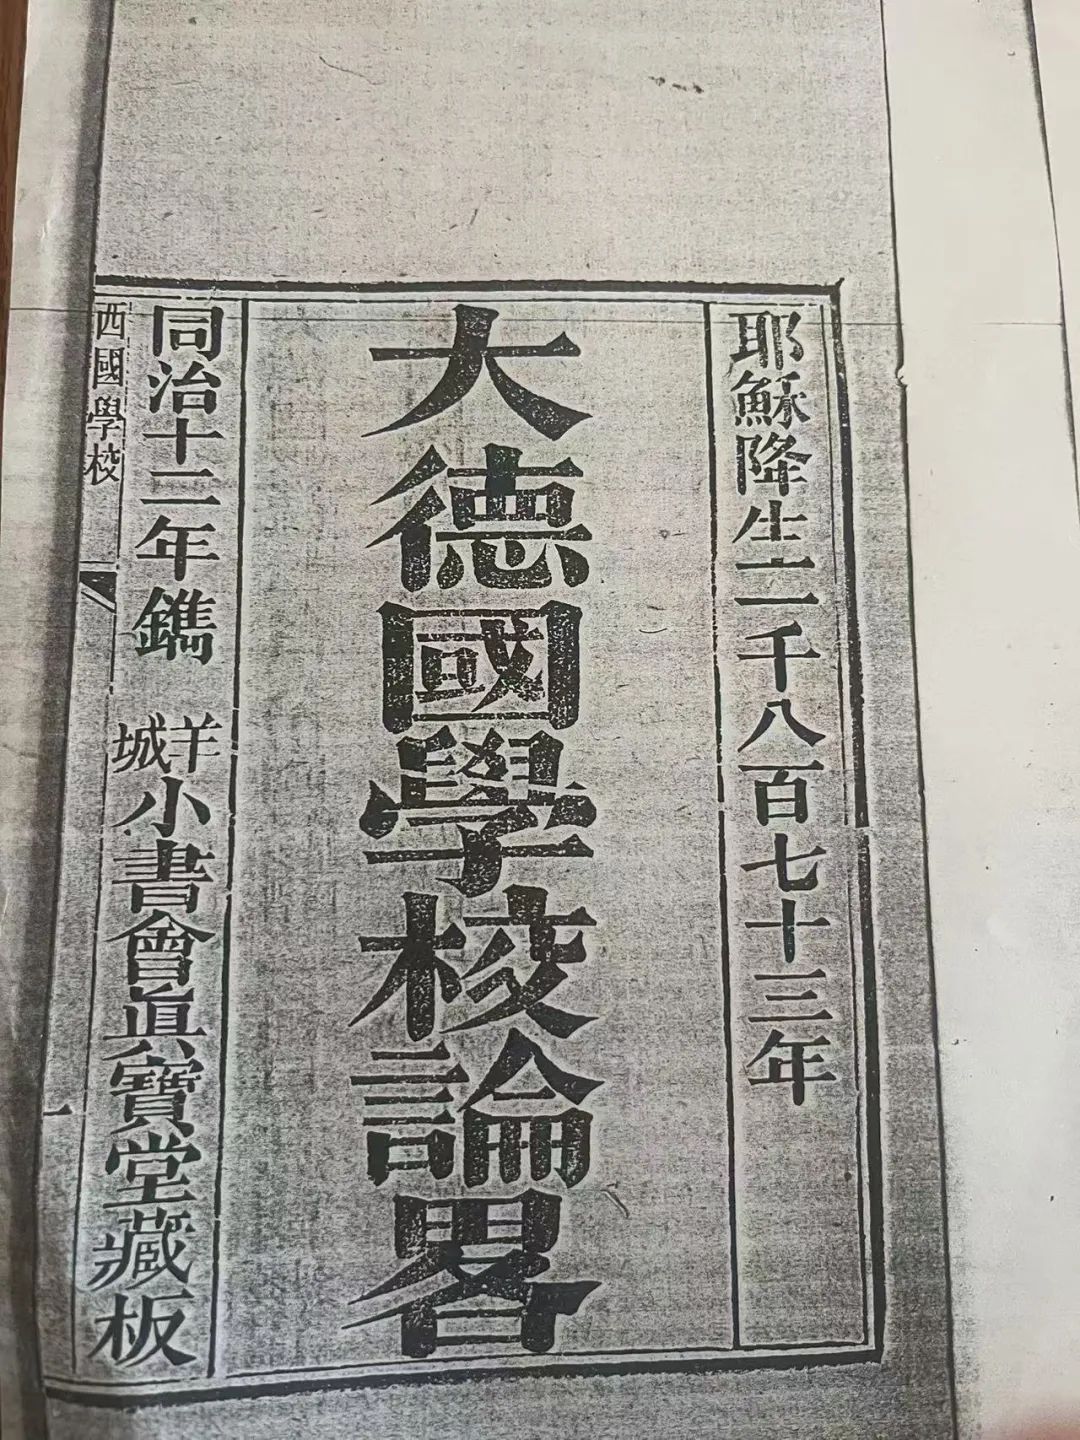 耶穌降生一千八百七十三年
大德國學校論畧
同治十二年鐫
羊城小書會眞寶堂藏板
西國學校
一